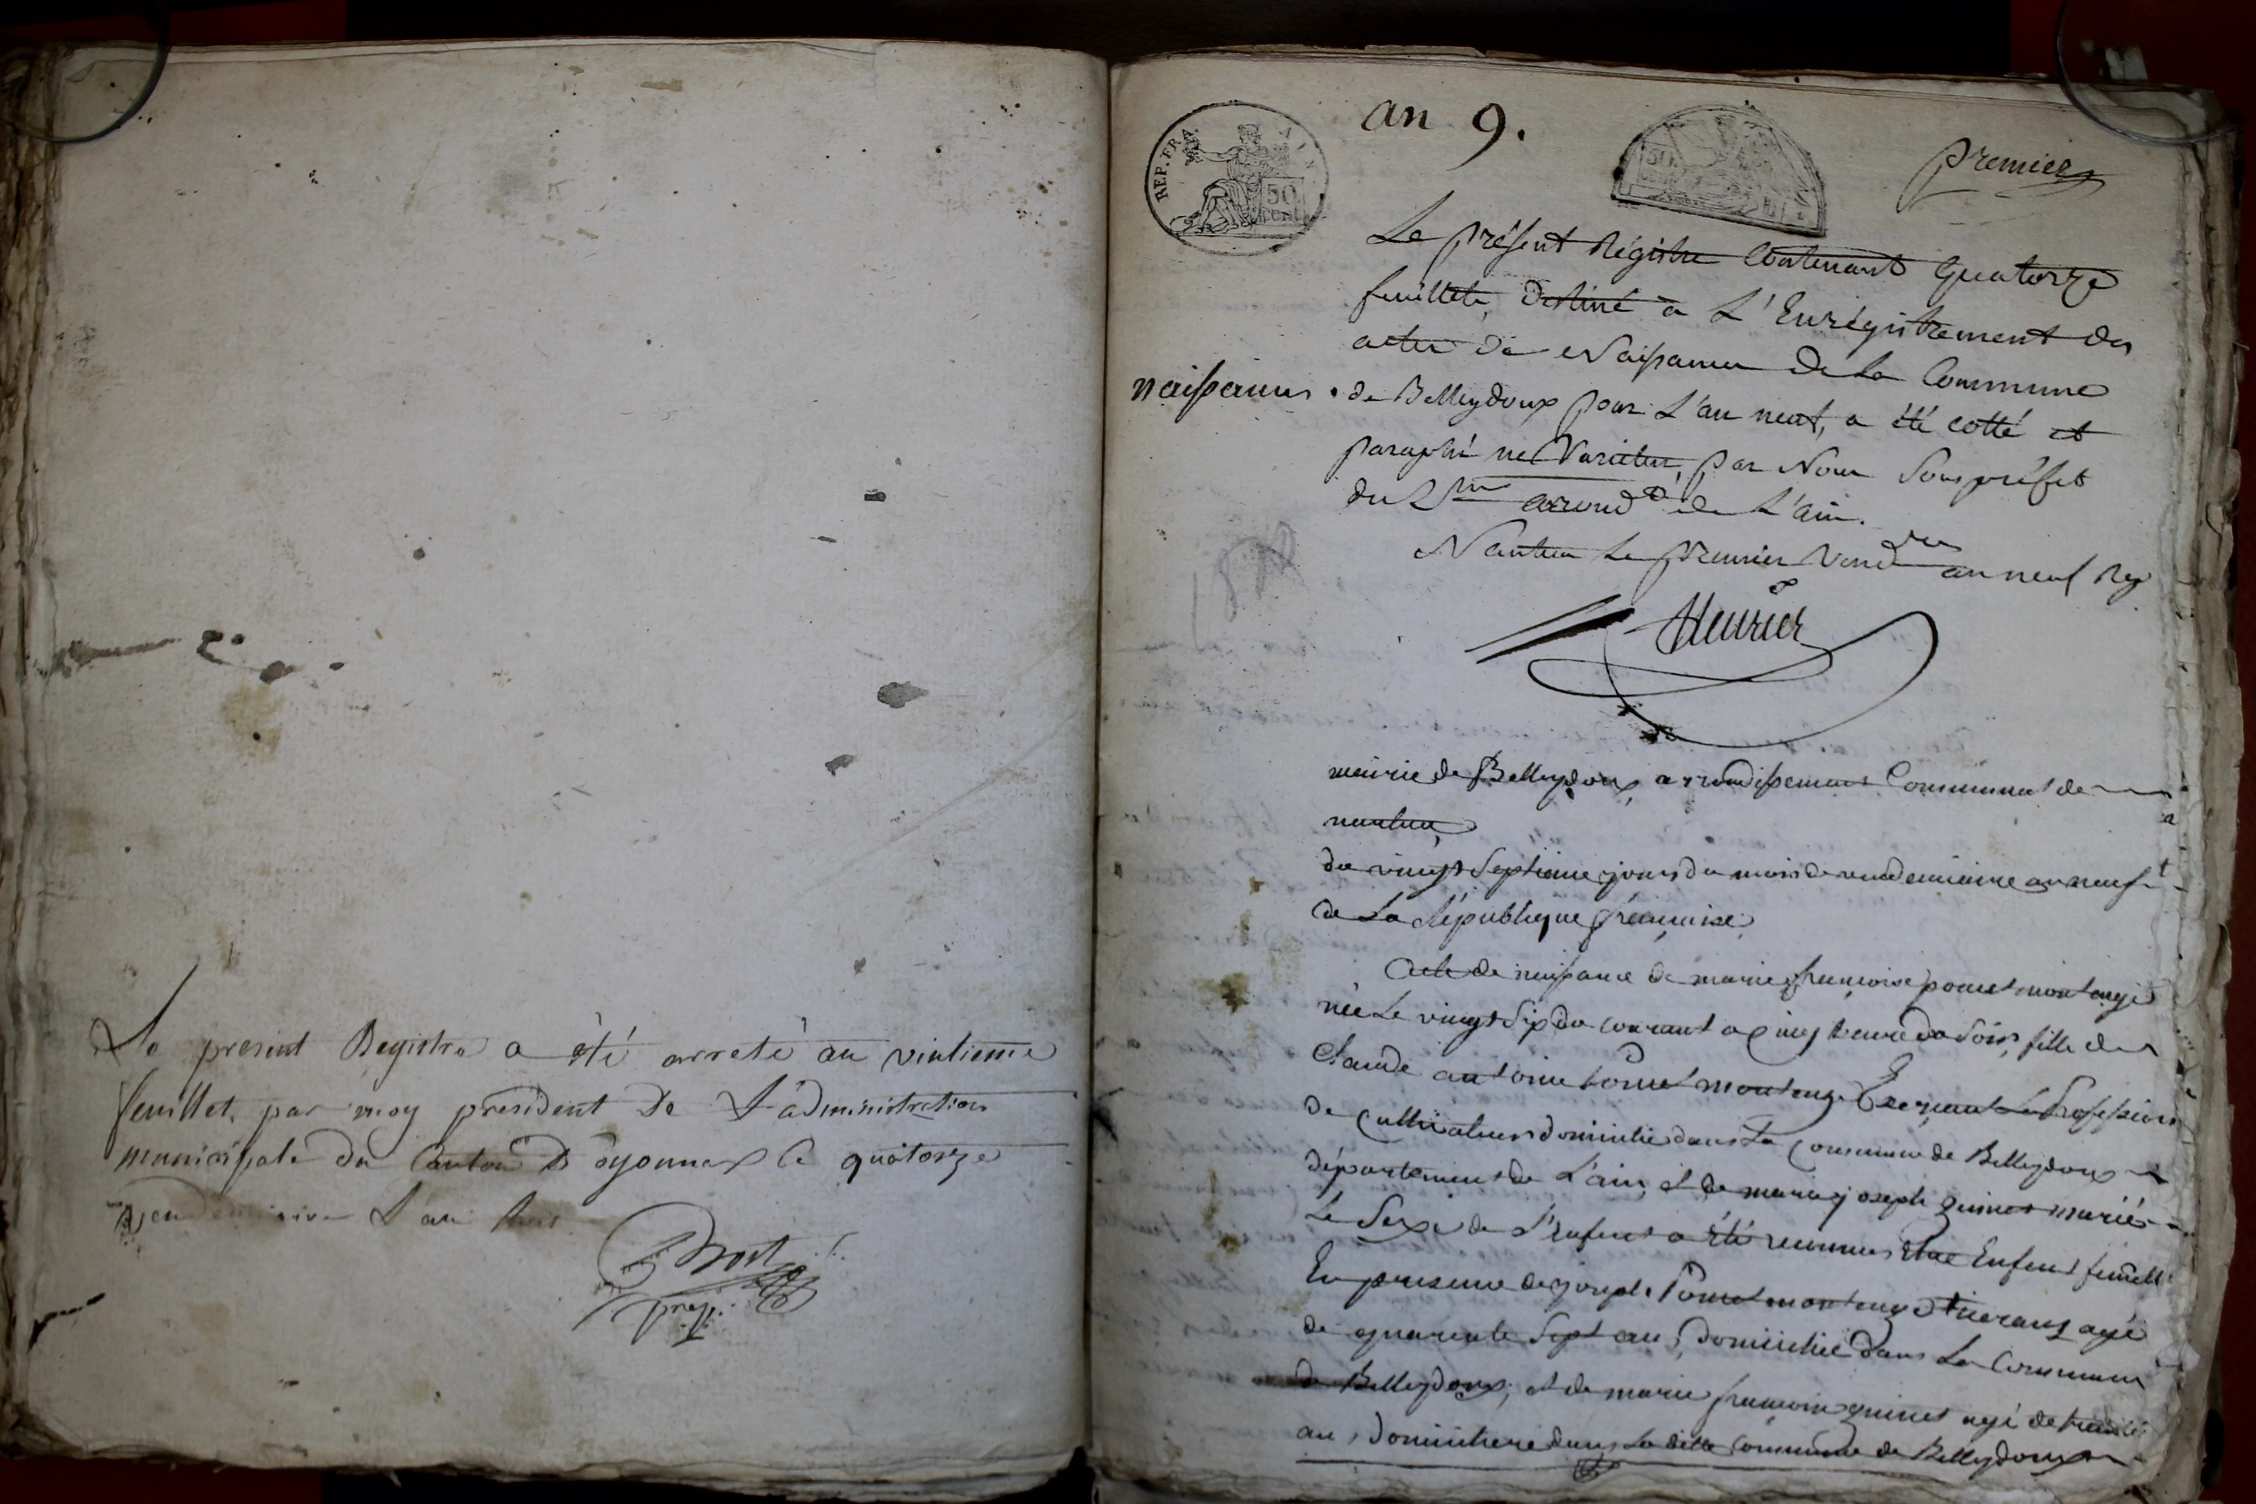 Le present Registre a été arreté au vintieme
feuillet, par moy president de L'administration
municipale du Canton D'oyonnax Ce quatorze
Vendemiaire L'an
Brost
presi.
an 9.
REP. FRA.
50
premier
Le présent Régistre Contenant quatorze
feuillets, destiné a L'Enrégistrement des
actes de Naissances de la Commune
naissances . de Belleydoux pour L'an neuf, a été cotté et
paraphé ne Varietur, par Nous Souspréfet
du 2me arrondt de L'ain.
Nantua le premier Vendre an neuf Rep
mairie de Belleydoux, arondissement Communal de
nantua,
du vingt Septieme jours du mois de vendemiaire an neuf
de La République française
Acte de naissance de marie françoise poncet montange
née Le vingt Six du courant a cinq heure du Soir, fille de
Claude antoine poncet montange Exerçant La Profession
de Cultivateur domicilié dans La Commune de Belleydoux
département de L'ain, et de marie joseph guinet mariés
Le Sexe de L'enfant a été reconnus Etre Enfant femelle
En presence de joseph Poncet montange agé
de quarante Sept ans, domicilié dans La Commune
de Belleydoux, et de marie françoise guinet agé de trente
ans, domiciliere dans La ditte Commune de Belleydoux